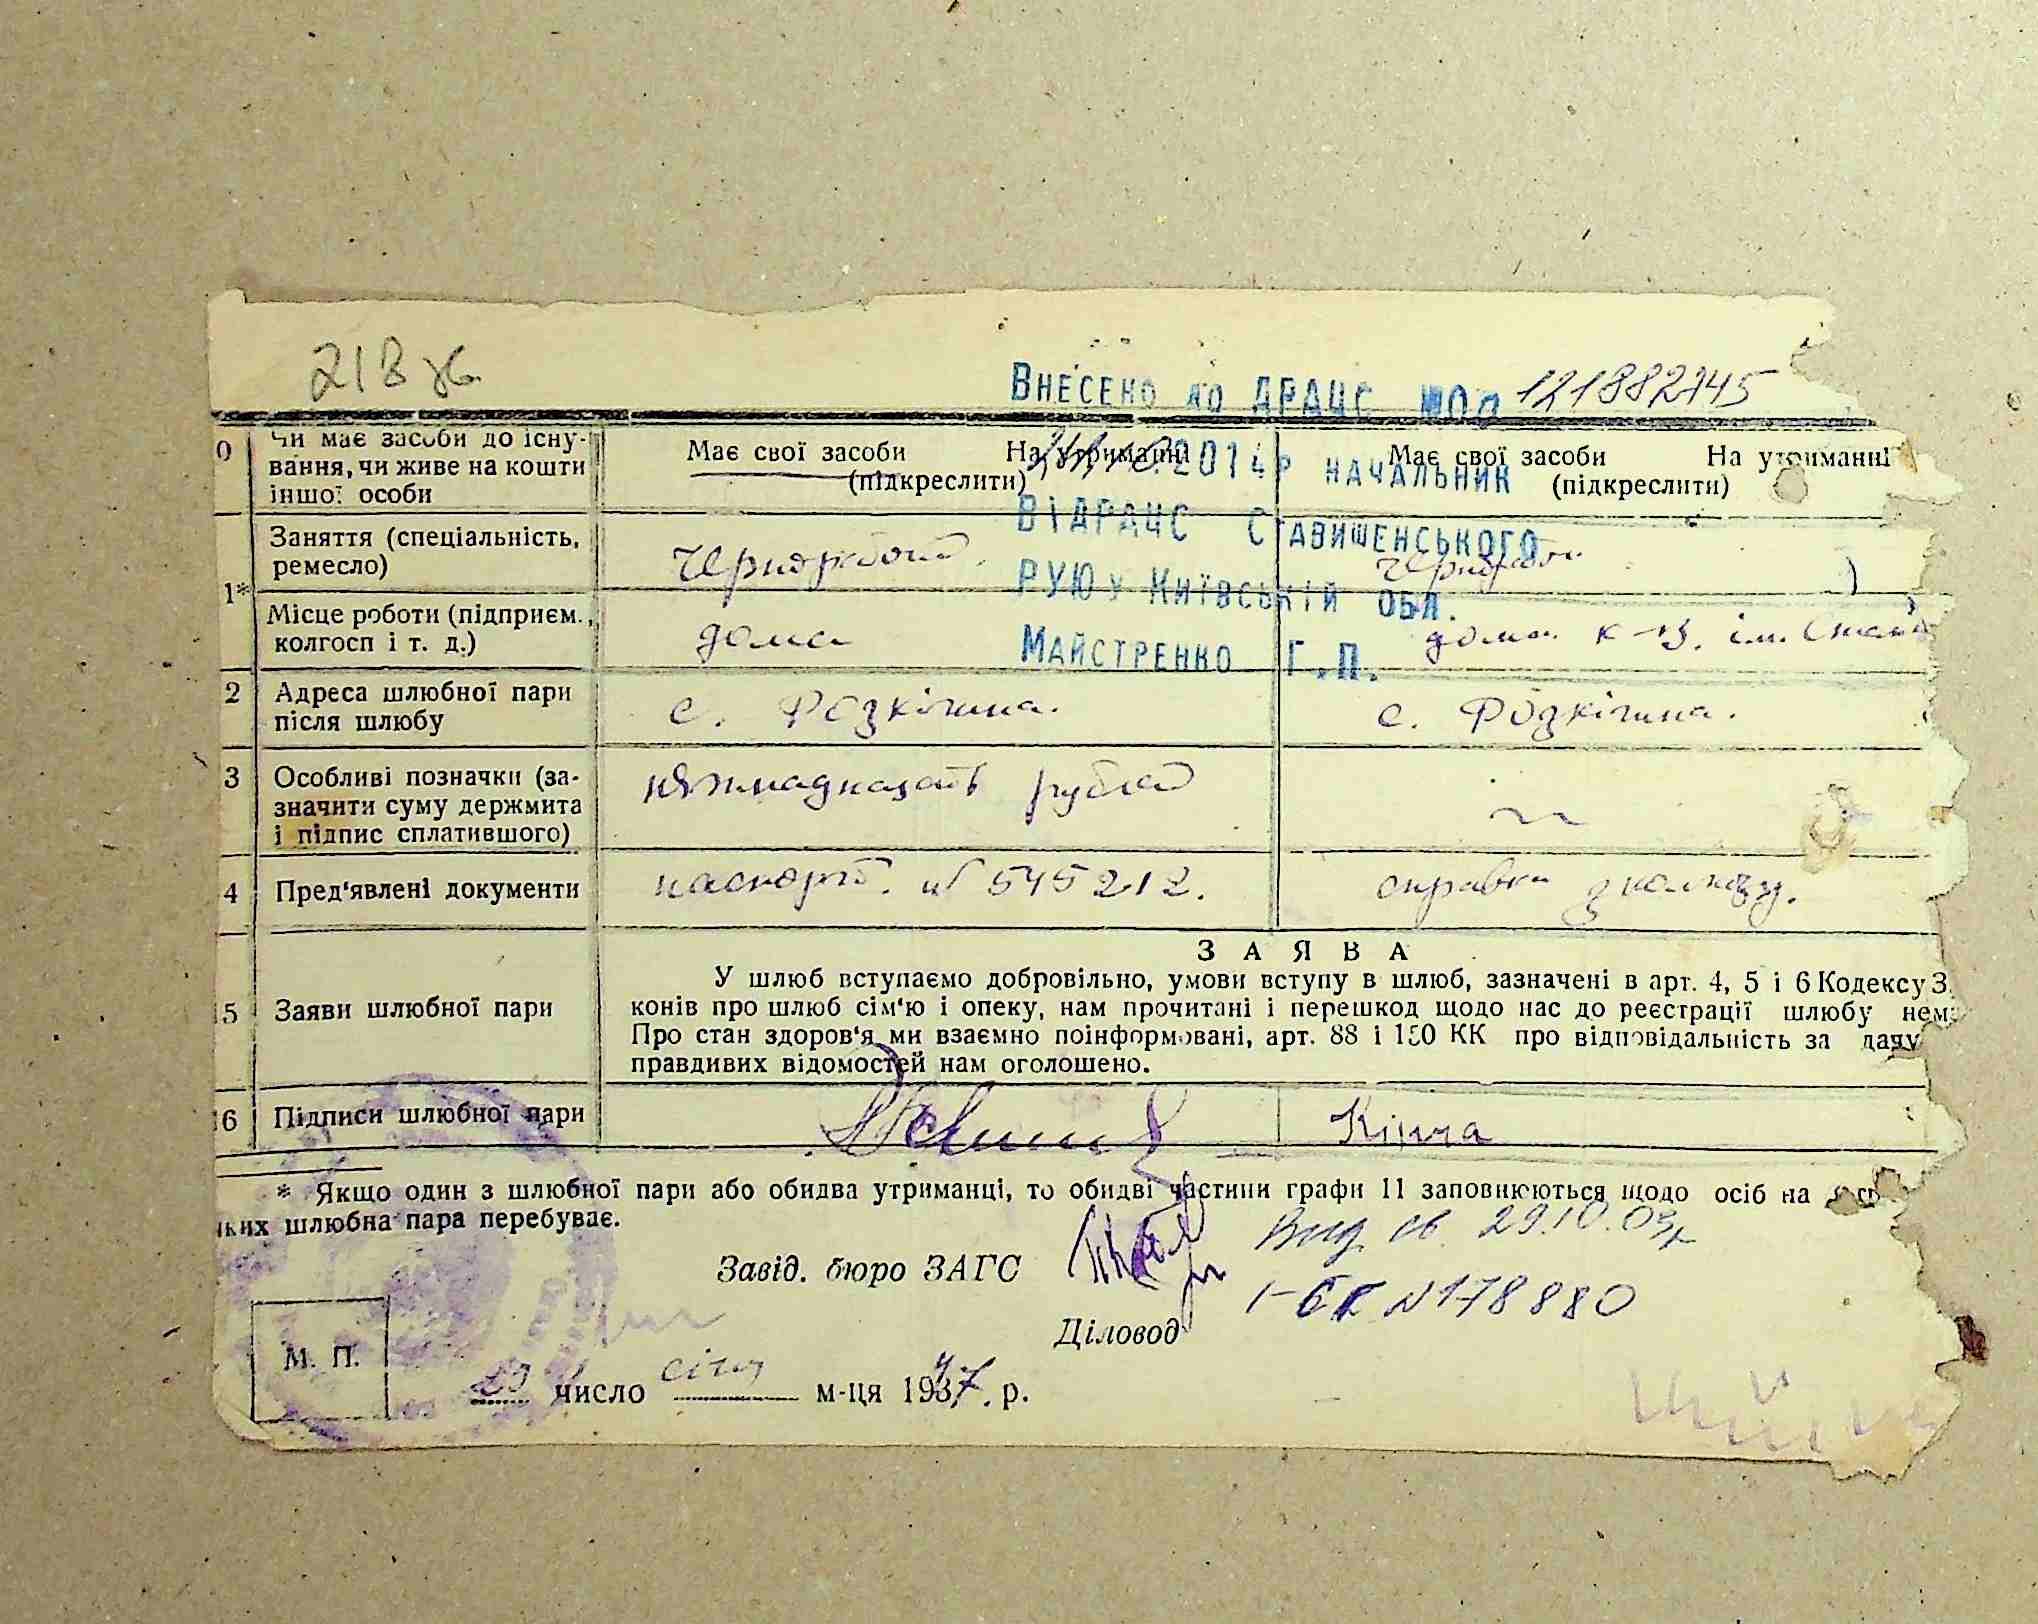 218 ж
Внесено до ДРАЦС 121882745
0 Чи має засоби до існу- вання, чи живе на кошти іншої особи
Має свої засоби На утриманні (підкреслити)
2014р начальник
Має свої засоби На утриманні (підкреслити)
ВідРАЦС Ставишенського
РУЮ у Київській обл.
Майстренко Г.П.
1* Заняття (спеціальність, ремесло)
Чернорабочий.
Місце роботи (підприєм., колгосп і т. д.)
дома
дома к-з. ім.
2 Адреса шлюбної пари після шлюбу
с. Розкішна.
с. Розкішна.
3 Особливі позначки (за- значити суму держмита і підпис сплатившого)
рублей
4 Пред'явлені документи
паспорт. № 545212.
справка з колхозу.
ЗАЯВА
5 Заяви шлюбної пари
У шлюб вступаємо добровільно, умови вступу в шлюб, зазначені в арт. 4, 5 і 6 Кодексу З
конів про шлюб сім'ю і опеку, нам прочитані і перешкод щодо нас до реєстрації шлюбу нем
Про стан здоров'я ми взаємно поінформовані, арт. 88 і 150 КК про відповідальність за дачу
правдивих відомостей нам оголошено.
6 Підписи шлюбної пари
* Якщо один з шлюбної пари або обидва утриманці, то обидві частини графи 11 заповнюються щодо осіб на
яких шлюбна пара перебуває.
Вид. св. 29.10.03р
Завід. бюро ЗАГС
1-БК №178880
Діловод
М. П.
23 число січня м-ця 1947. р.